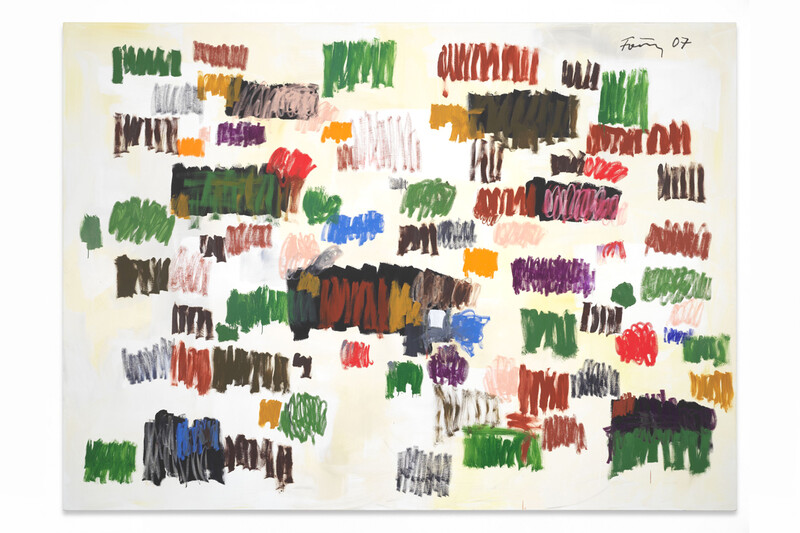 Förg 07